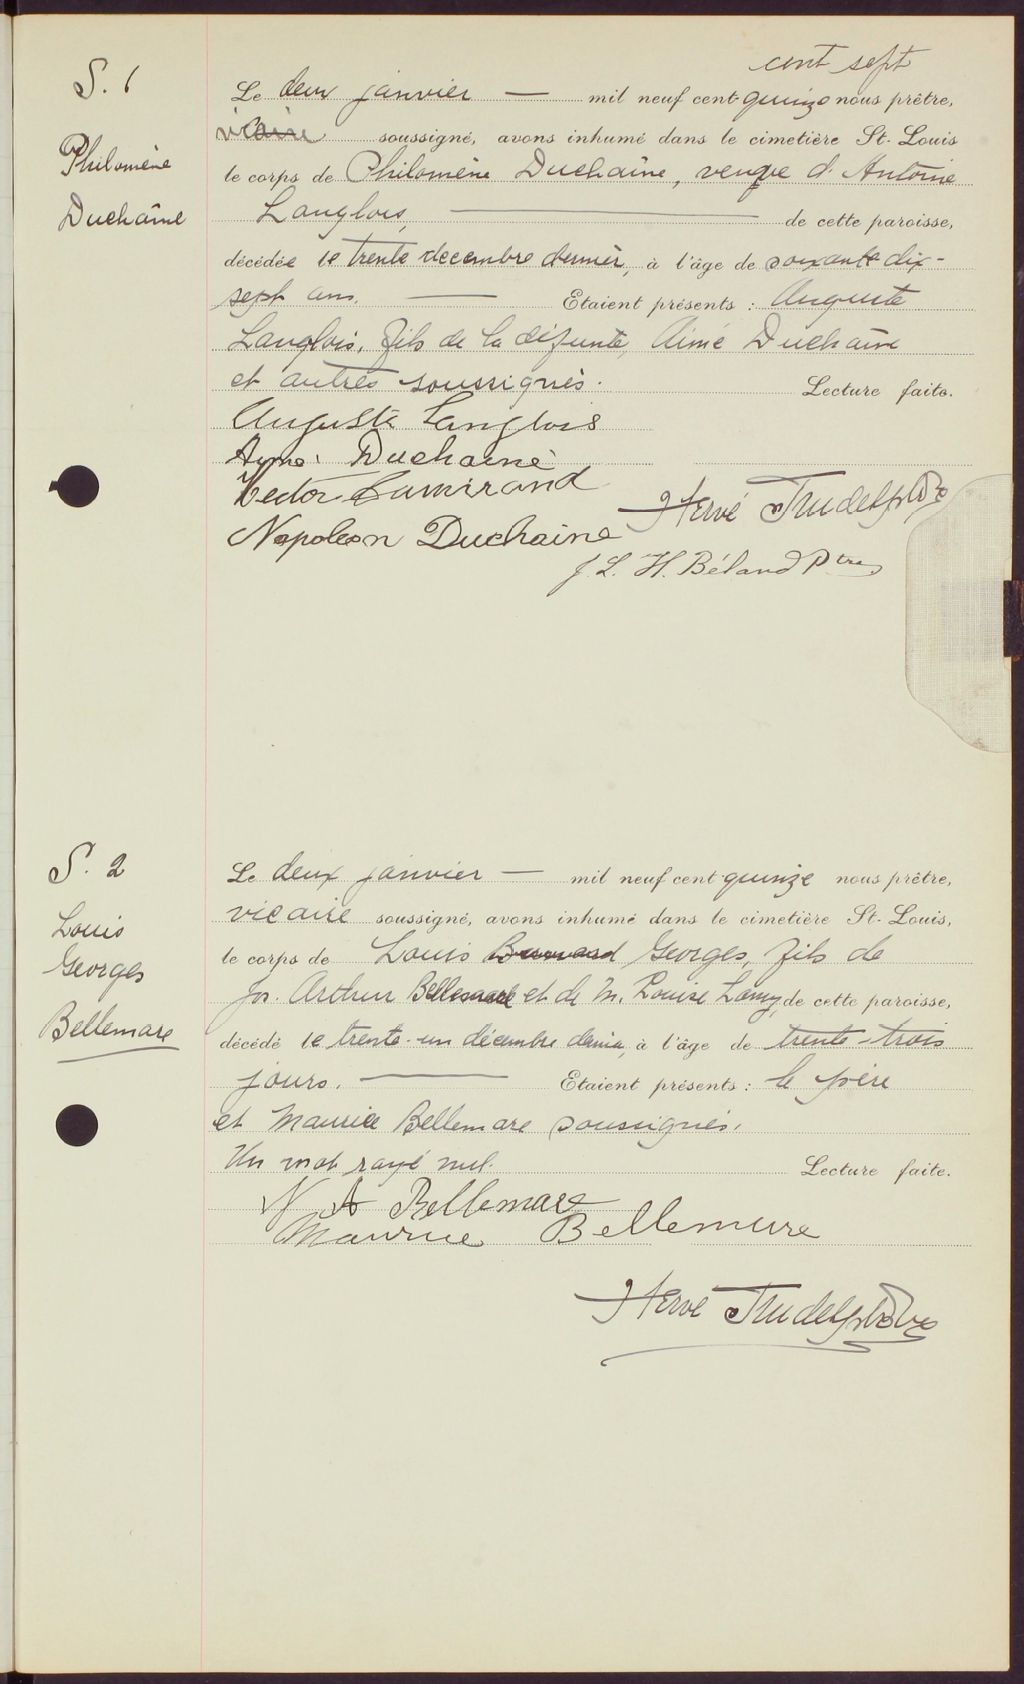 cent sept
S. 1
Philomène
Duchaîne
Le deux janvier — mil neuf cent quinze nous prêtre,
vicaire soussigné, avons inhumé dans le cimetière St-Louis
le corps de Philomène Duchaîne, veuve d'Antoine
Langlois, — de cette paroisse,
décédée le trente décembre dernier, à l'âge de soixante dix-
sept ans. — Etaient présents : Auguste
Langlois, fils de la défunte, Aimé Duchaîne
et autres soussignés. Lecture faite.
Auguste Langlois
Duchaine
Hector Lamirand
Hervé Trudel ptre
Napoleon Duchaine
J. L. H. Béland Ptre
S. 2
Louis
Georges
Bellemare
Le deux janvier — mil neuf cent quinze nous prêtre,
vicaire soussigné, avons inhumé dans le cimetière St-Louis,
le corps de Louis Georges, fils de
Jos. Arthur Bellemare et de M. Louise Lamy, de cette paroisse,
décédé le trente-un décembre dernier, à l'âge de trente-trois
jours. — Etaient présents : le père
et Maurice Bellemare soussignés.
Un mot rayé nul. Lecture faite.
N A Bellemare
Maurice Bellemare
Hervé Trudel ptre